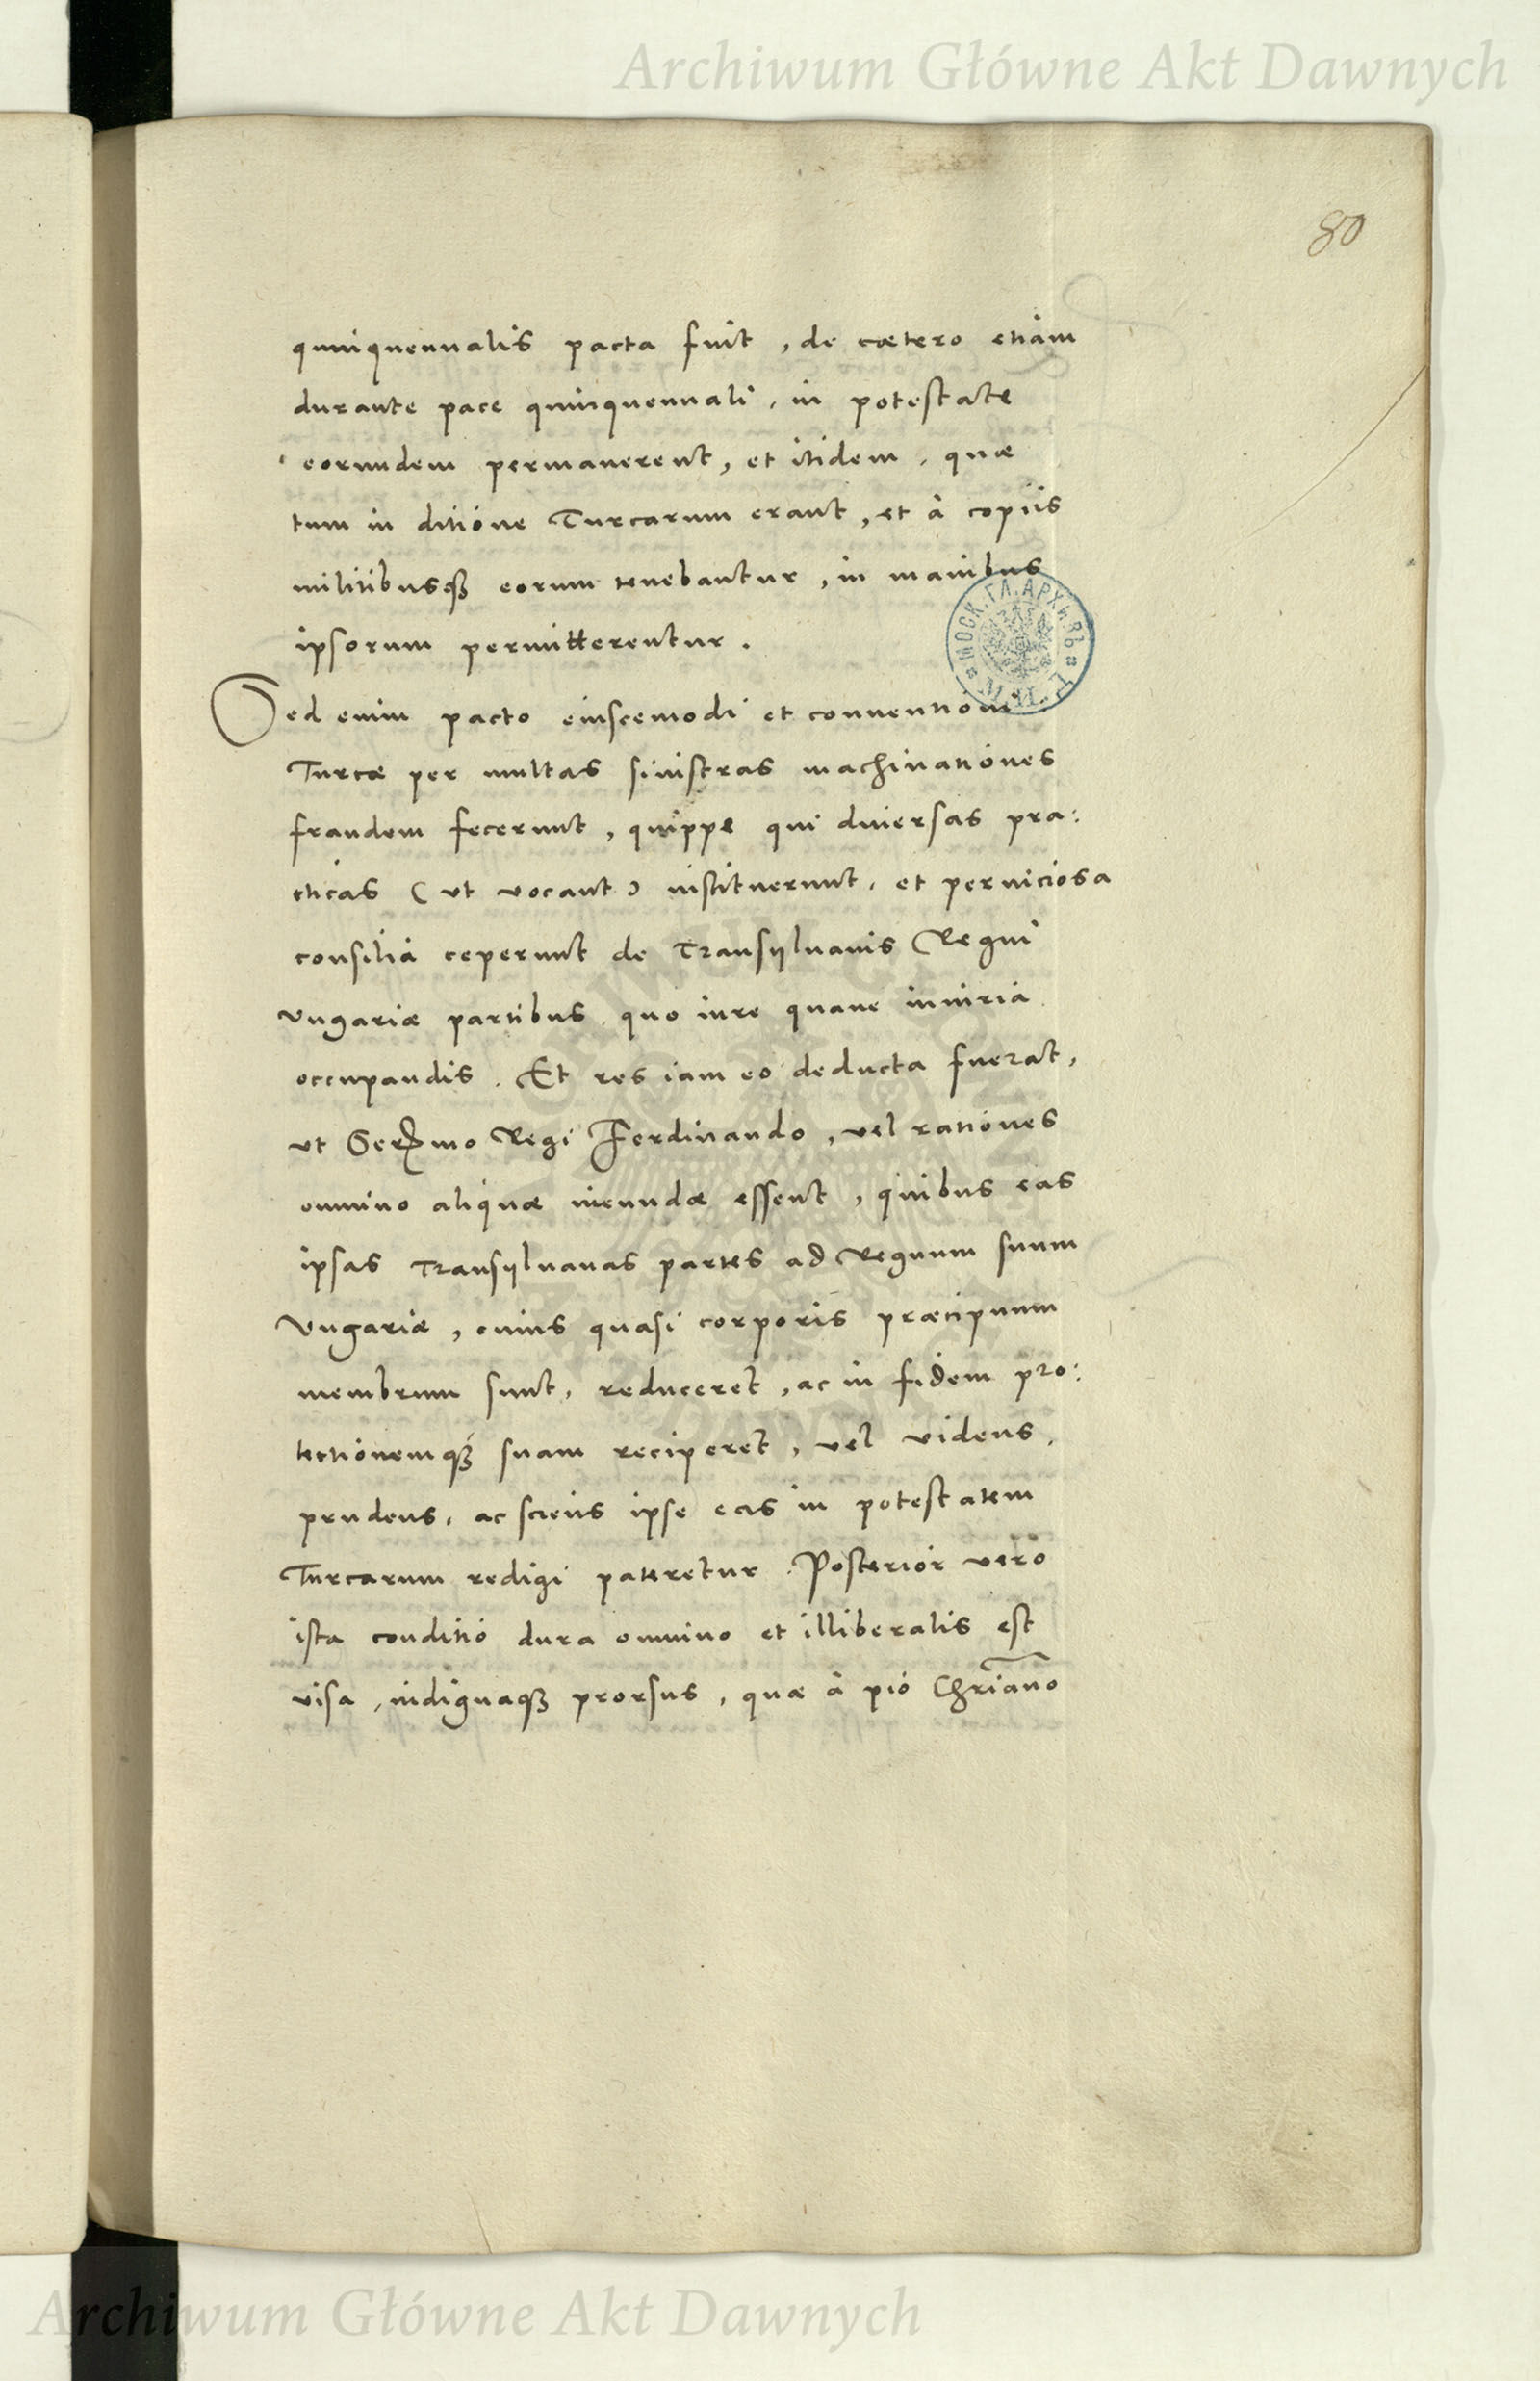 Archiwum Główne Akt Dawnych
80
quinquennalis pacta fuit, de cætero etiam
durante pace quinquennali, in potestate
eorundem permanerent, et itidem, quæ
tum in ditione Turcarum erant, et à copiis
militibusq₃ eorum tenebantur, in manibus
ipsorum permitterentur.
МОСК. ГЛ. АРХИВЪ
Sed enim pacto eiuscemodi et conuentioni
Turcæ per multas sinistras machinationes
fraudem fecerunt, quippe qui diuersas pra:
cticas (ut vocant) instituerunt, et perniciosa
consilia ceperunt de Transyluanis Regni
Vngariæ partibus quo iure quaue iniuria
occupandis. Et res iam eo deducta fuerat,
ut Serᵐᵒ Regi Ferdinando, vel rationes
omnino aliquæ ineundæ essent, quibus eas
ipsas Transyluanas partes ad Regnum suum
Vngariæ, cuius quasi corporis præcipuum
membrum sunt, reduceret, ac in fidem pro:
tectionemq₃ suam reciperet, vel videns,
prudens, ac sciens ipse eas in potestatem
Turcarum redigi pateretur. Posterior vero
ista conditio dura omnino et illiberalis est
visa, indignaq₃ prorsus, quæ à pio Chriano
Archiwum Główne Akt Dawnych